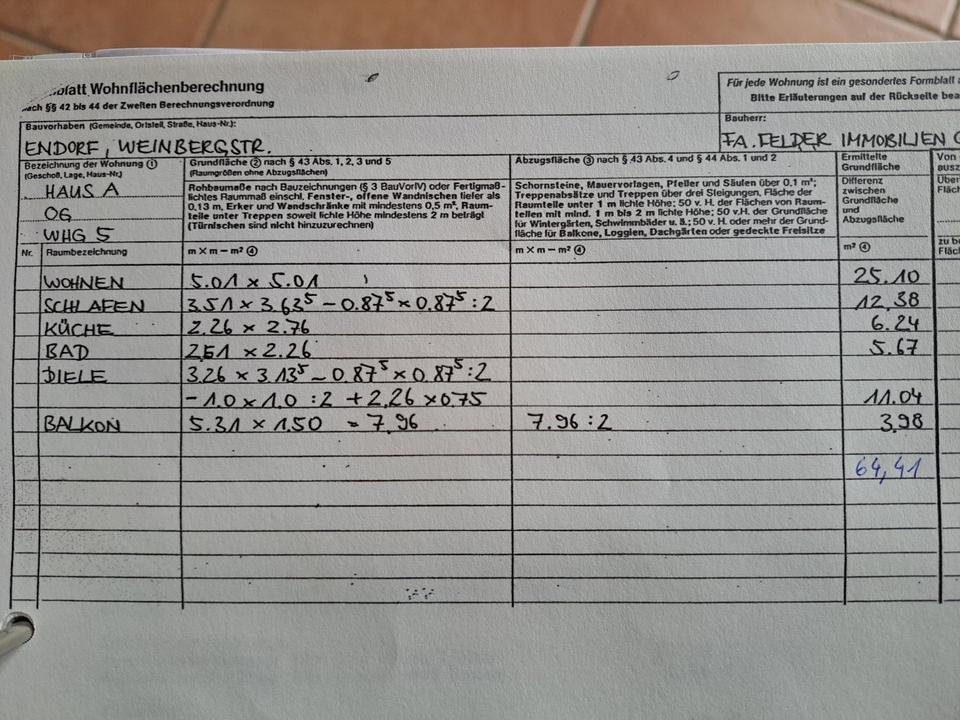 blatt Wohnflächenberechnung
nach §§ 42 bis 44 der Zweiten Berechnungsverordnung
Für jede Wohnung ist ein gesondertes Formblatt
Bitte Erläuterungen auf der Rückseite bea
Bauvorhaben (Gemeinde, Ortsteil, Straße, Haus-Nr.):
ENDORF, WEINBERGSTR.
Bauherr:
FA. FELDER IMMOBILIEN
Bezeichnung der Wohnung ①
(Geschoß, Lage, Haus-Nr.)
HAUS A
OG
WHG 5
Grundfläche ② nach § 43 Abs. 1, 2, 3 und 5
(Raumgrößen ohne Abzugsflächen)
Rohbaumaße nach Bauzeichnungen (§ 3 BauVorlV) oder Fertigmaß-
lichtes Raummaß einschl. Fenster-, offene Wandnischen tiefer als
0,13 m, Erker und Wandschränke mit mindestens 0,5 m², Raum-
teile unter Treppen soweit lichte Höhe mindestens 2 m beträgt
(Türnischen sind nicht hinzuzurechnen)
Abzugsfläche ③ nach § 43 Abs. 4 und § 44 Abs. 1 und 2
Schornsteine, Mauervorlagen, Pfeiler und Säulen über 0,1 m²;
Treppenabsätze und Treppen über drei Steigungen, Fläche der
Raumteile unter 1 m lichte Höhe; 50 v. H. der Flächen von Raum-
teilen mit mind. 1 m bis 2 m lichte Höhe; 50 v.H. der Grundfläche
für Wintergärten, Schwimmbäder u. ä.; 50 v. H. oder mehr der Grund-
fläche für Balkone, Loggien, Dachgärten oder gedeckte Freisitze
Ermittelte
Grundfläche
Differenz
zwischen
Grundfläche
und
Abzugsfläche
Von
Über
Fläch
Nr. Raumbezeichnung m x m – m² ④ m x m – m² ④ m² ④
zu be
Fläc
WOHNEN 5.01 x 5.01 25.10
SCHLAFEN 3.51 x 3.63⁵ – 0.87⁵ x 0.87⁵ : 2 12,38
KÜCHE 2.26 x 2.76 6.24
BAD 2.51 x 2.26 5.67
DIELE 3.26 x 3.13⁵ – 0.87⁵ x 0.87⁵ : 2
– 1.0 x 1.0 : 2 + 2.26 x 0.75 11.04
BALKON 5.31 x 1.50 = 7.96 7.96 : 2 3,98
64,41